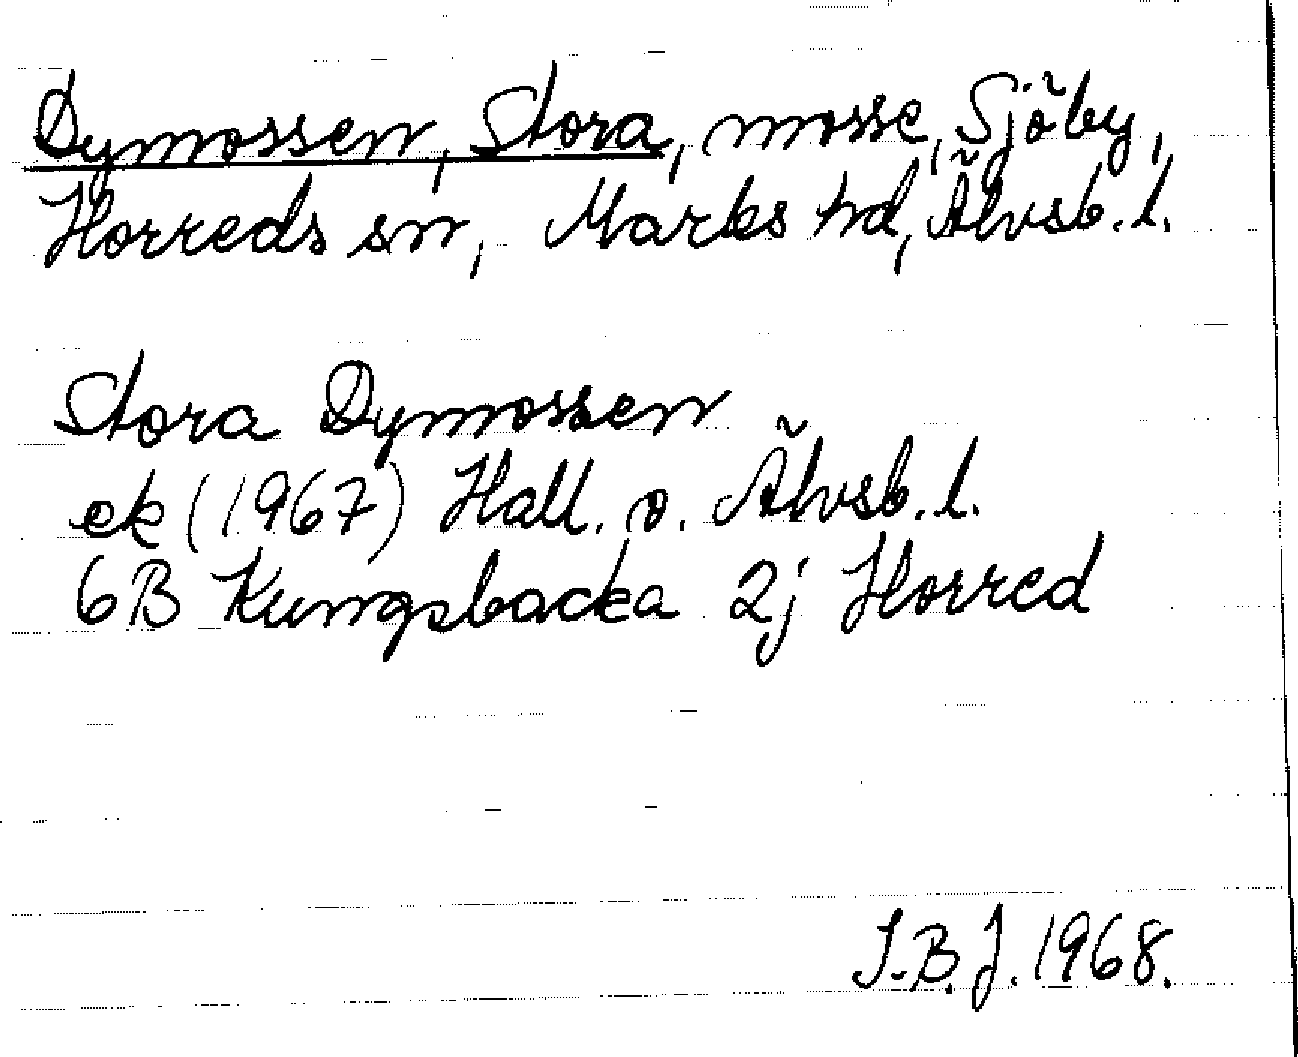 Dymossen, Stora, mosse, Sjöby,
Horreds sn, Marks hd, Älvsb. l.
Stora Dymossen
ek (1967) Hall. o. Älvsb. l.
6B Kungsbacka 2j Horred
I.B.J. 1968.